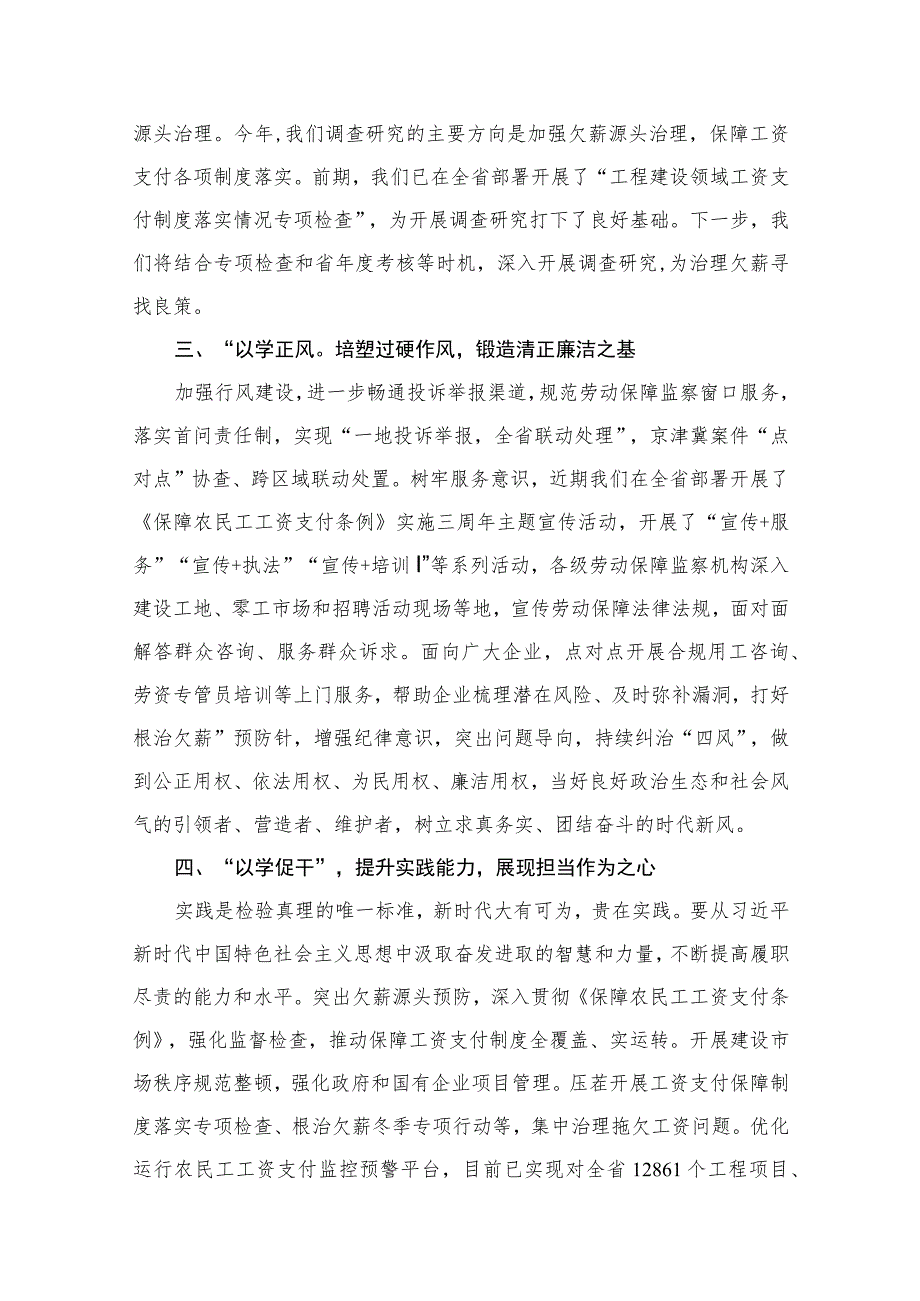 源头治理。今年,我们调查研究的主要方向是加强欠薪源头治理，保障工资
支付各项制度落实。前期，我们已在全省部署开展了“工程建设领域工资支
付制度落实情况专项检查”，为开展调查研究打下了良好基础。下一步，我
们将结合专项检查和省年度考核等时机，深入开展调查研究,为治理欠薪寻
找良策。
三、“以学正风。培塑过硬作风，锻造清正廉洁之基
加强行风建设,进一步畅通投诉举报渠道,规范劳动保障监察窗口服务，
落实首问责任制，实现“一地投诉举报，全省联动处理”，京津冀案件“点
对点”协查、跨区域联动处置。树牢服务意识，近期我们在全省部署开展了
《保障农民工工资支付条例》实施三周年主题宣传活动，开展了“宣传+服
务”“宣传+执法”“宣传+培训I”等系列活动，各级劳动保障监察机构深入
建设工地、零工市场和招聘活动现场等地，宣传劳动保障法律法规，面对面
解答群众咨询、服务群众诉求。面向广大企业，点对点开展合规用工咨询、
劳资专管员培训等上门服务，帮助企业梳理潜在风险、及时弥补漏洞，打好
根治欠薪”预防针，增强纪律意识，突出问题导向，持续纠治“四风”，做
到公正用权、依法用权、为民用权、廉洁用权，当好良好政治生态和社会风
气的引领者、营造者、维护者，树立求真务实、团结奋斗的时代新风。
四、“以学促干”，提升实践能力，展现担当作为之心
实践是检验真理的唯一标准，新时代大有可为，贵在实践。要从习近平
新时代中国特色社会主义思想中汲取奋发进取的智慧和力量，不断提高履职
尽责的能力和水平。突出欠薪源头预防，深入贯彻《保障农民工工资支付条
例》，强化监督检查，推动保障工资支付制度全覆盖、实运转。开展建设市
场秩序规范整顿，强化政府和国有企业项目管理。压茬开展工资支付保障制
度落实专项检查、根治欠薪冬季专项行动等，集中治理拖欠工资问题。优化
运行农民工工资支付监控预警平台，目前已实现对全省 12861 个工程项目、